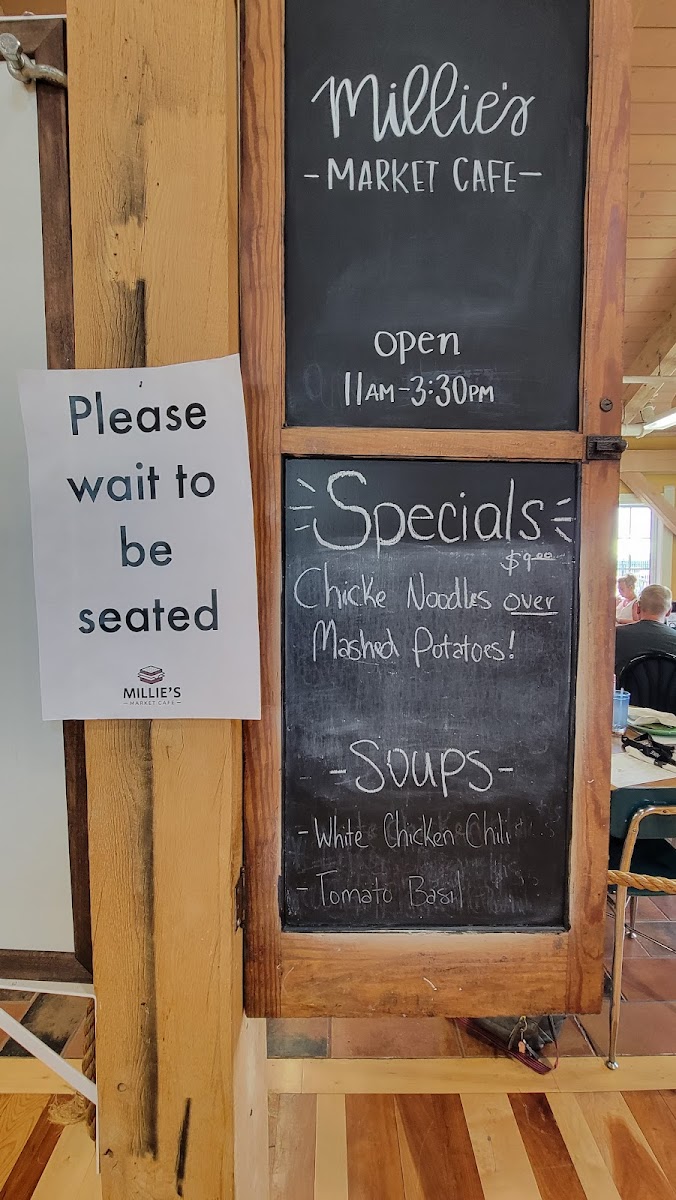 Millie's
-MARKET CAFE-
open
11AM-3:30PM
Please
wait to
be
seated
MILLIE'S
-MARKET CAFE-
Specials
$9.00
Chicke Noodles over
Mashed Potatoes!
-Soups-
-White Chicken Chili
-Tomato Basil